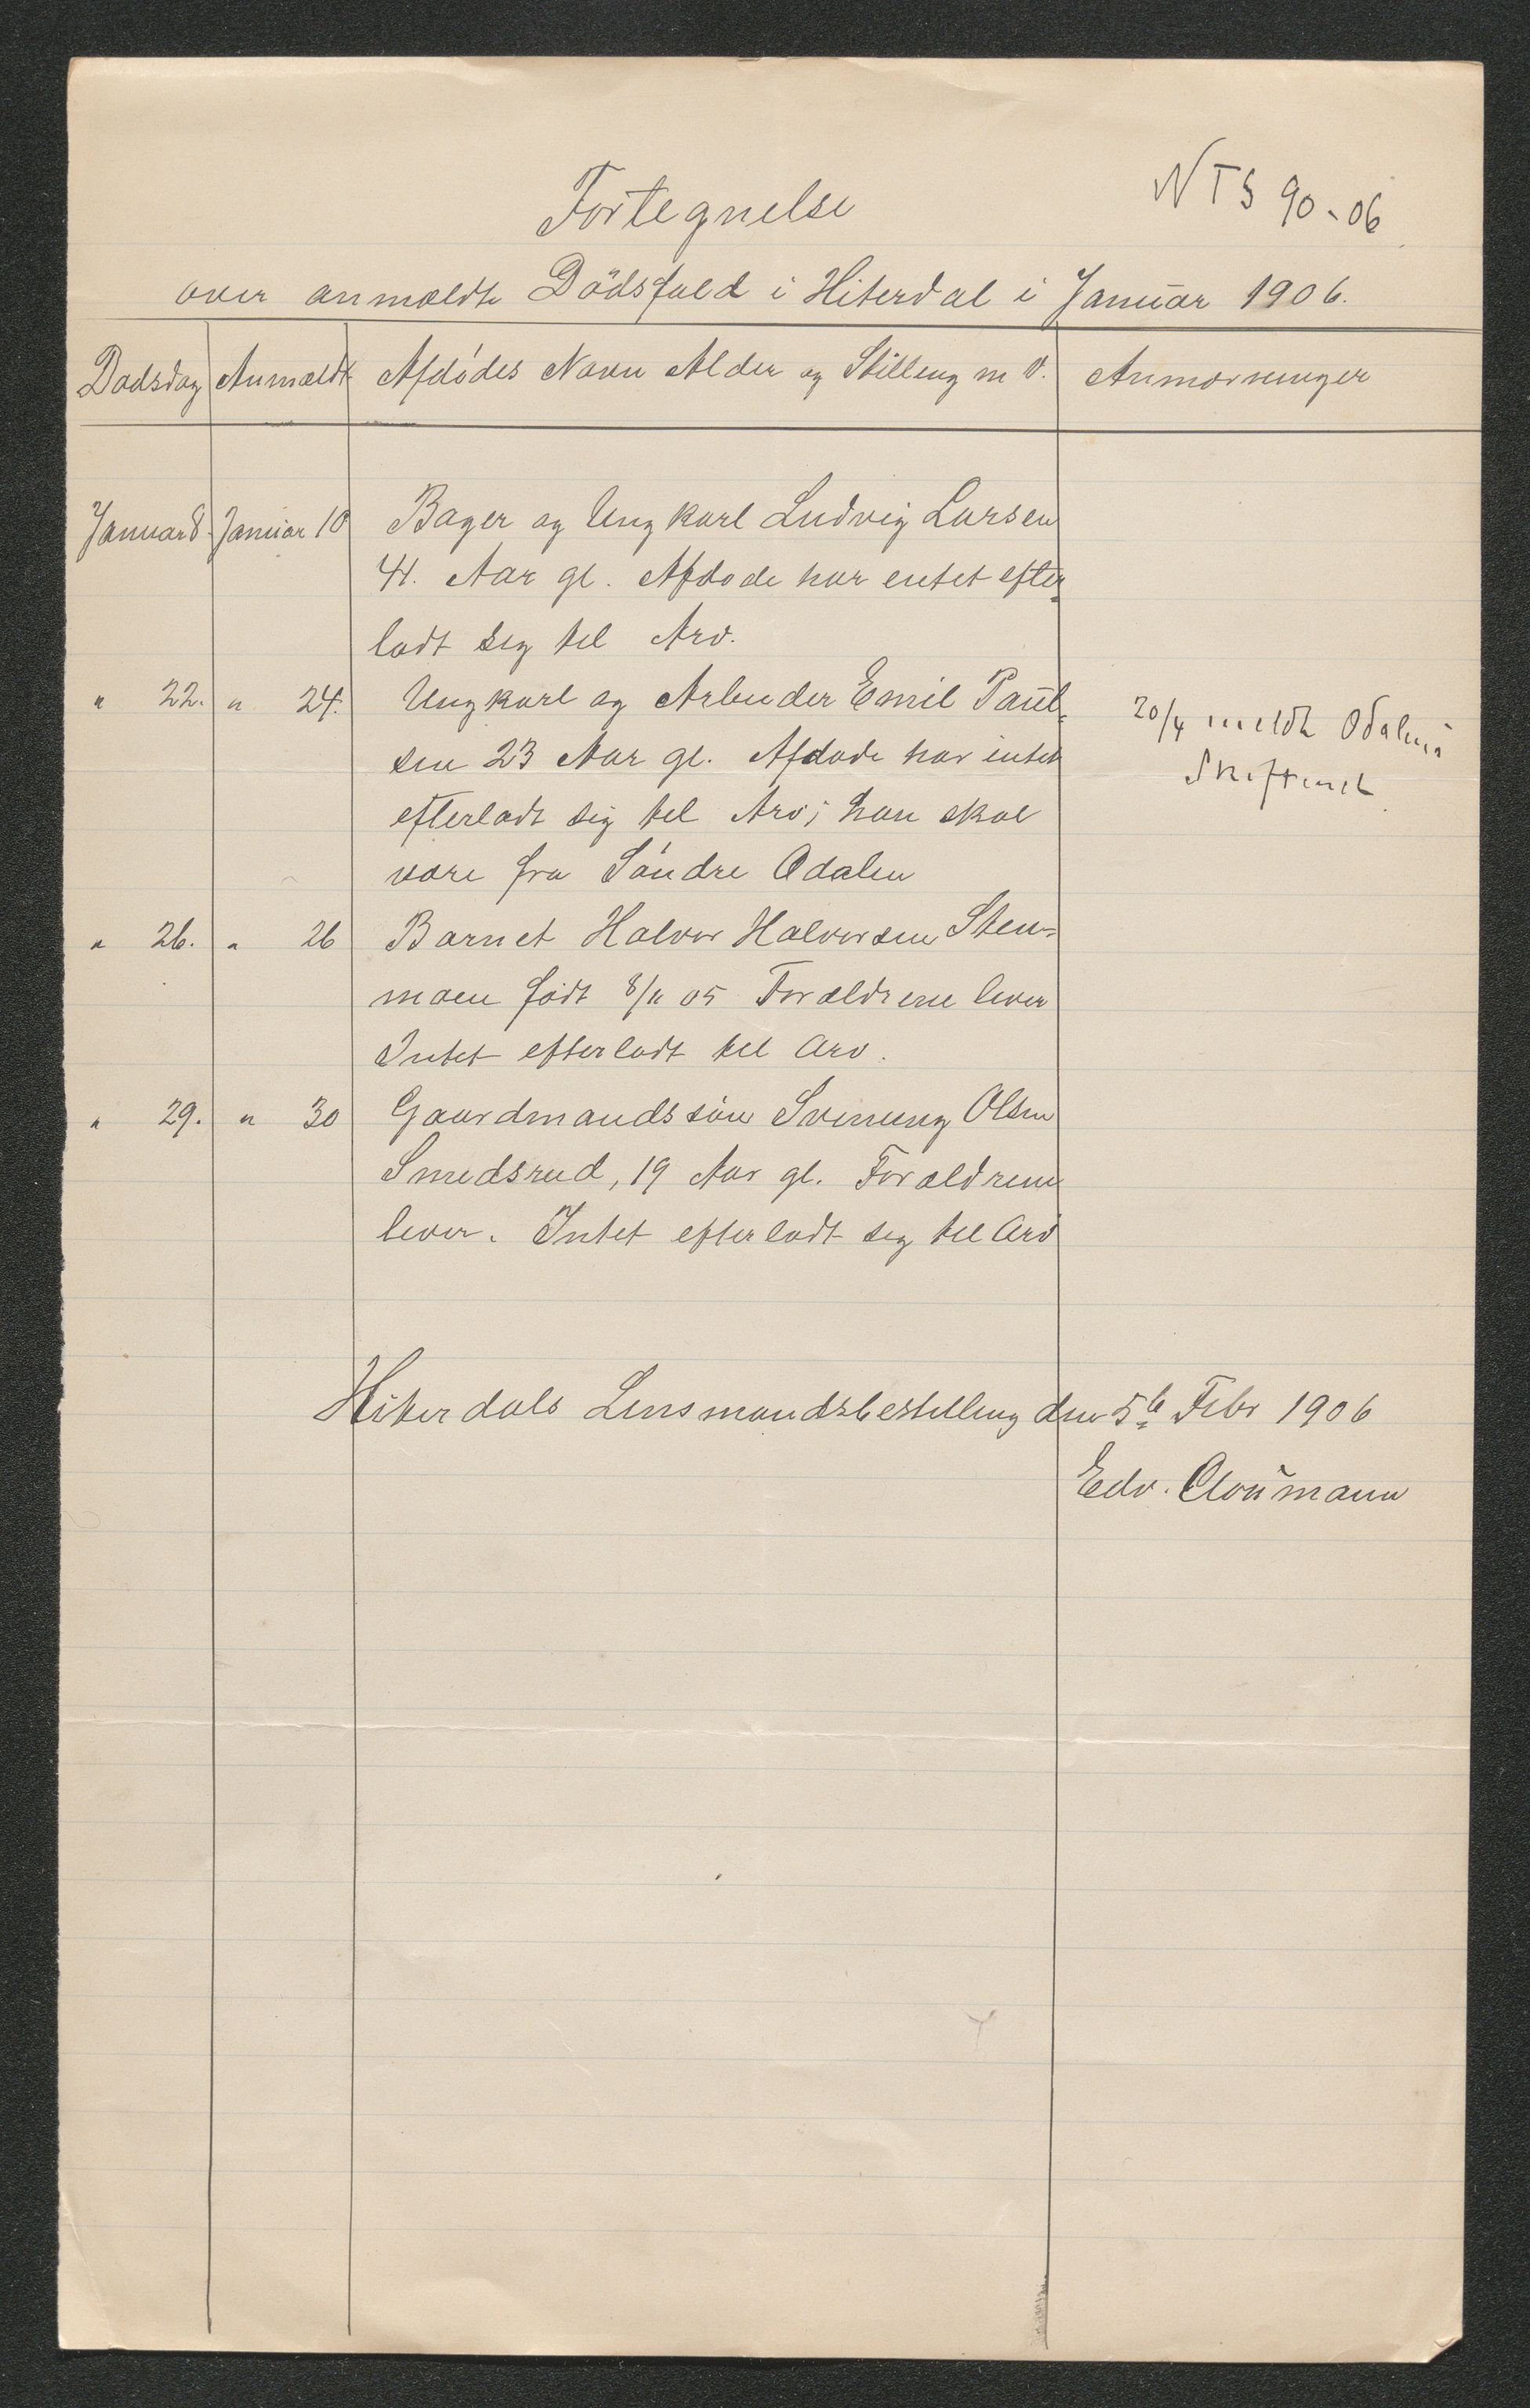 NTS 90-06
Fortegnelse
over anmeldte Dödsfald i Hiterdal i Januar 1906.
Dødsdag Anmeldt Afdödes Navn Alder og Stilling m V. Anmærninger
Januar 8. Januar 10 Bager og Ungkarl Ludvig Larsen
41. Aar gl. Afdøde har intet efter-
ladt sig til Arv.
" 22. " 24. Ungkarl og Arbeider Emil Paul-
sen 23 Aar gl. Afdøde har intet
efterladt sig til Arv; han skal
være fra Söndre Odalen
20/4 meldt Odalens
Skifteret
" 26. " 26 Barnet Halvor Halvorsen Sten-
moen født 8/11 05 Forældrene lever
Intet efterladt til Arv.
" 29. " 30 Gaardmandssön Svenung Olsen
Smedsrud, 19 Aar gl. Forældrene
lever. Intet efterladt sig til Arv
Hiterdals Lensmandsbestilling den 5te Febr 1906
Edv. Cloumann